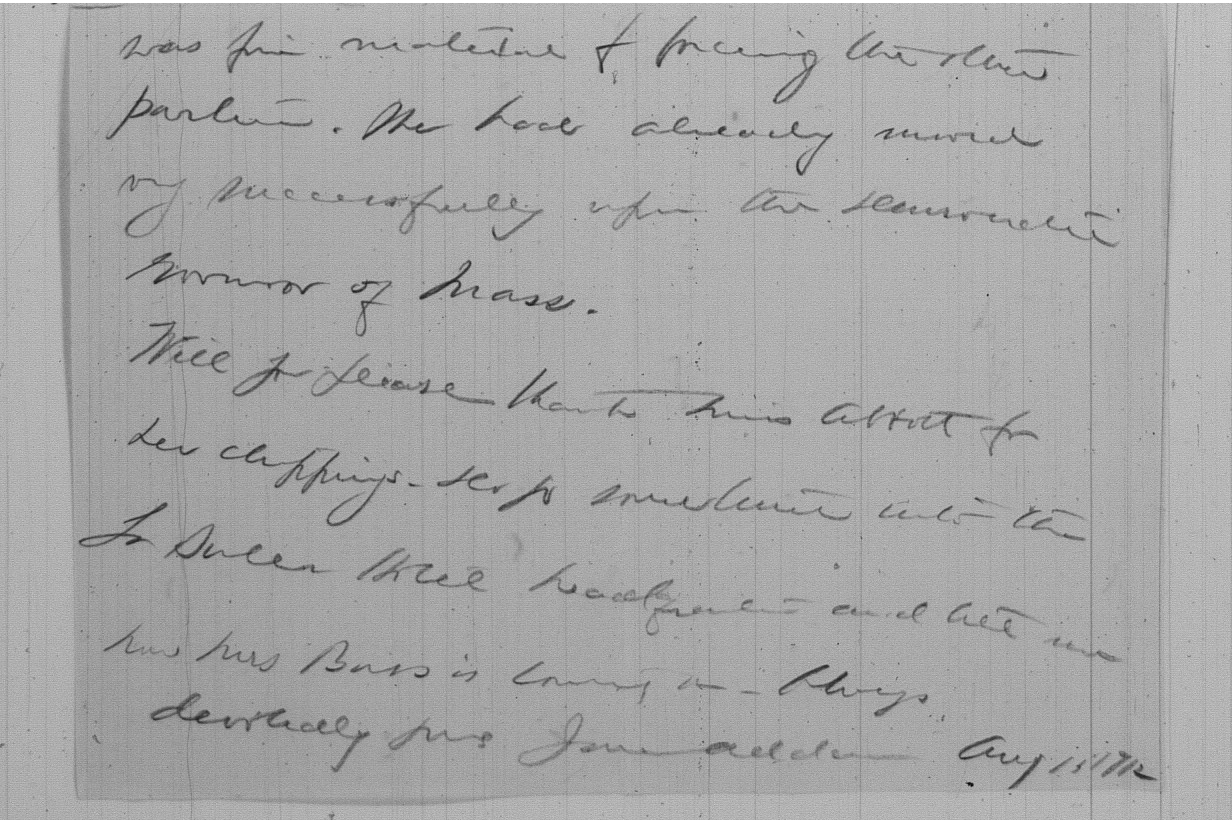 was fine material for forcing the other
parties. We had already moved
very successfully upon the democratic
Governor of Mass.
Will you please thank Miss Abbott for
her clippings - do go sometime into the
La Salle Hotel headquarters and tell me
how Mrs Bass is coming on - Always
devotedly yours Jane Addams Aug 15 1912